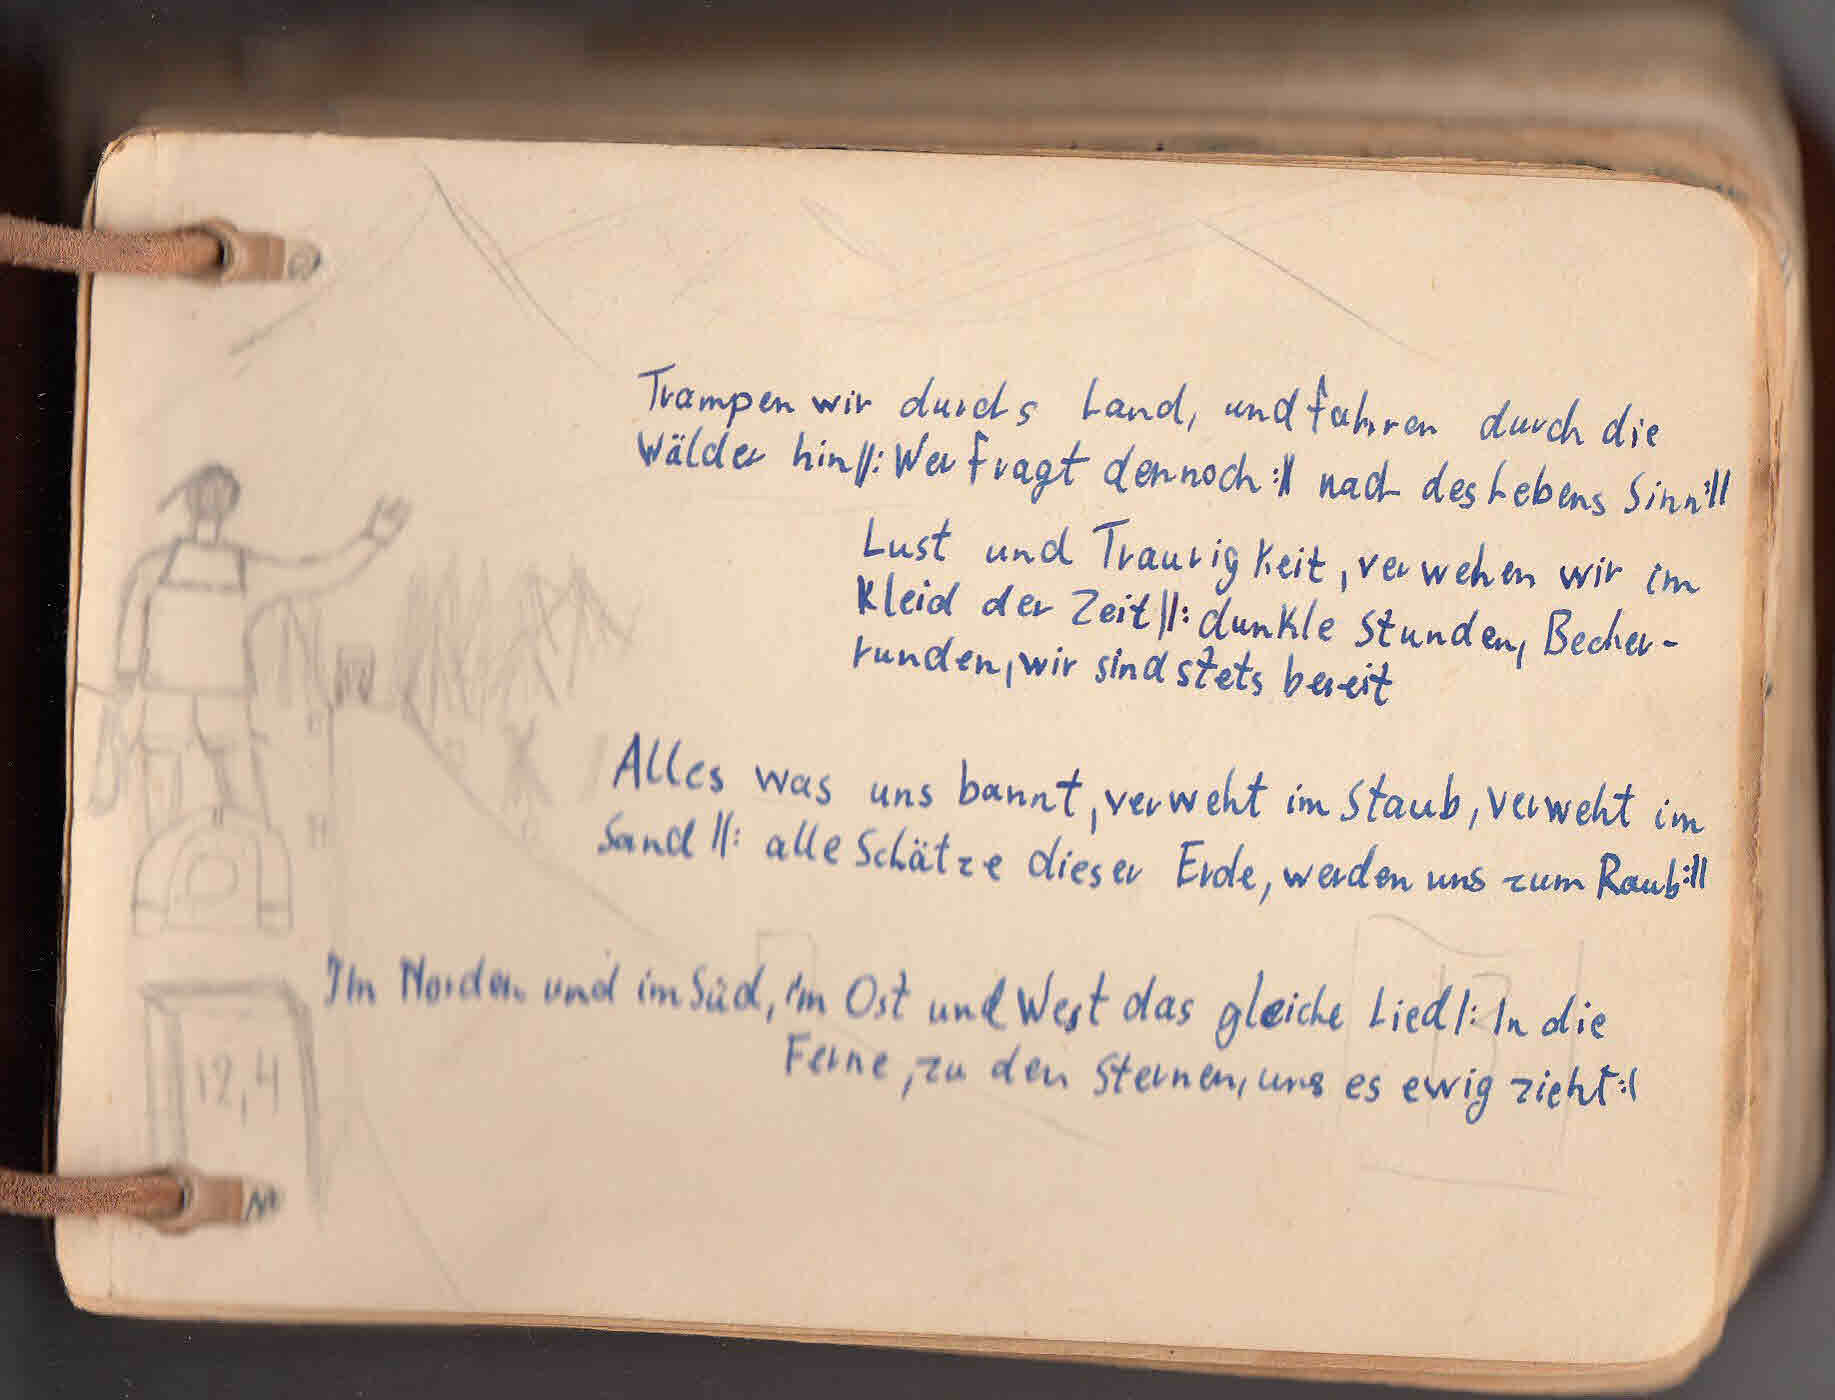 Trampen wir durchs Land, und fahren durch die
Wälder hin ||: Wer fragt dennoch :|| nach des Lebens Sinn :||
Lust und Traurigkeit, verwehen wir im
Kleid der Zeit ||: dunkle Stunden, Becher-
runden, wir sind stets bereit
Alles was uns bannt, verweht im Staub, verweht im
Sand ||: alle Schätze dieser Erde, werden uns zum Raub :||
Im Norden und im Süd, im Ost und West das gleiche Lied |: In die
Ferne, zu den Sternen, uns es ewig zieht :|
12,4